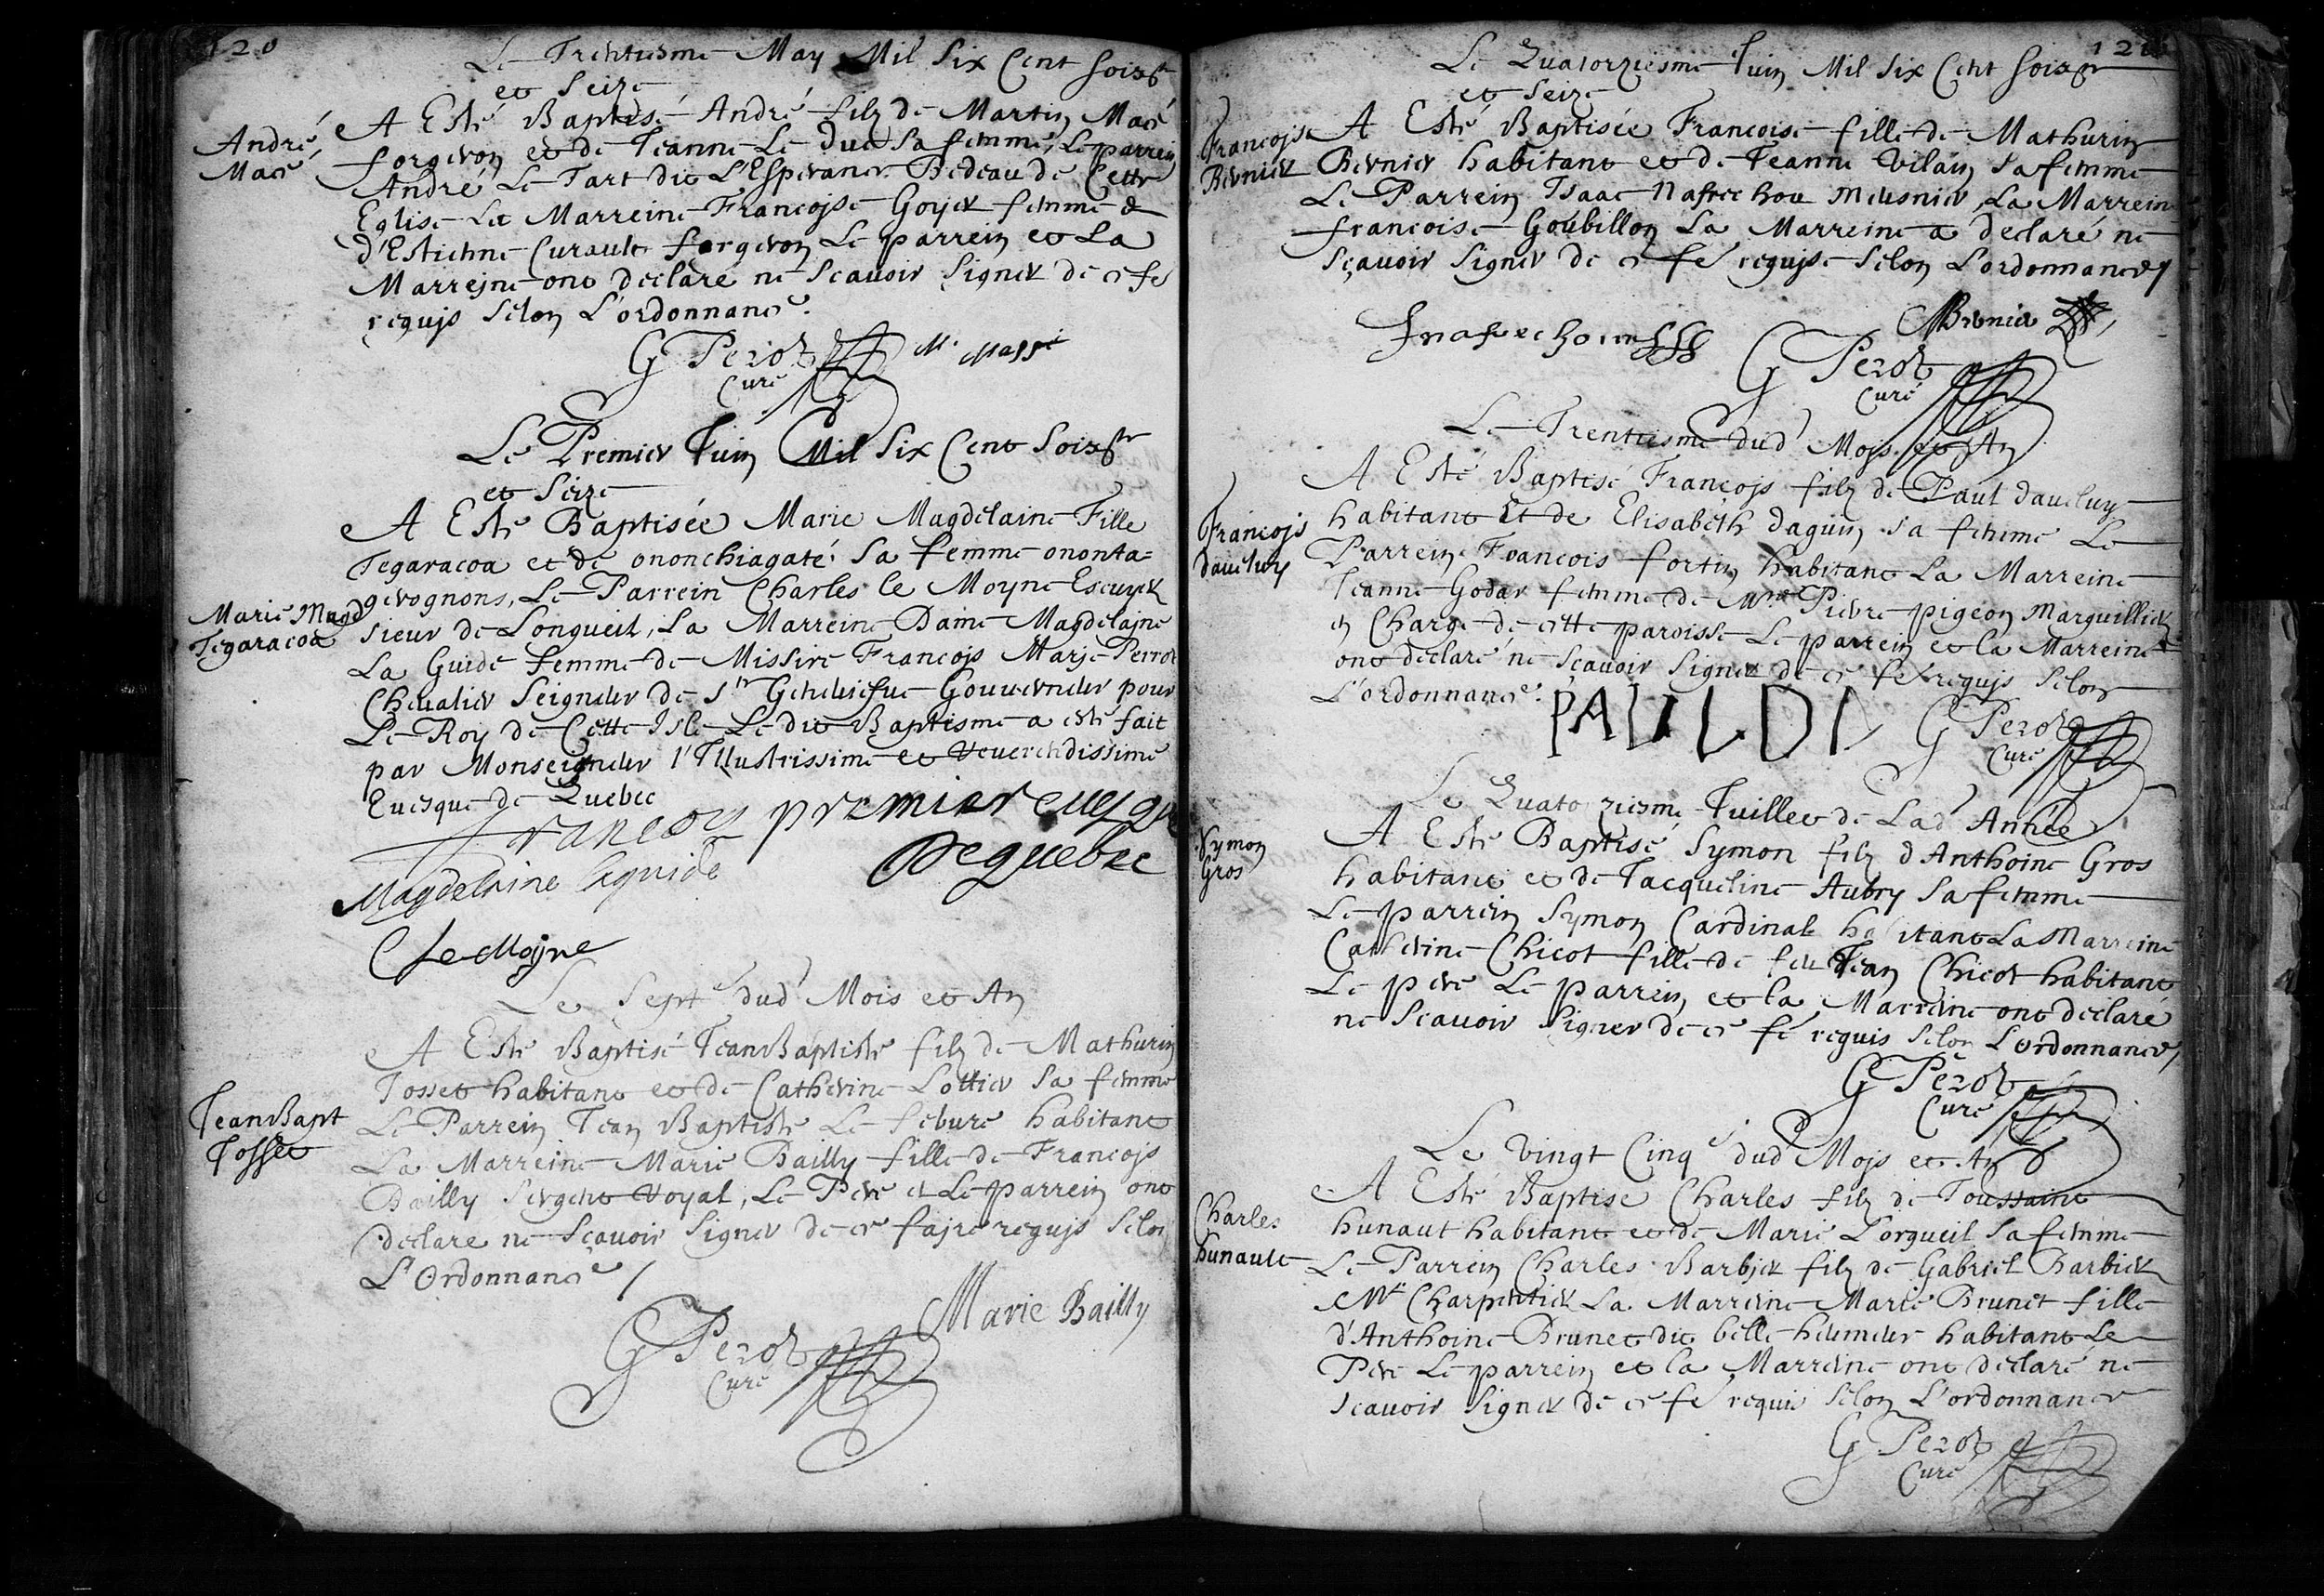 120
Le Trentiesme May Mil Six Cent soixte
et Seize
André
Macé
A Esté Baptisé André filz de Martin Macé
forgeron et de Jeanne Le Duc Sa femme, Le parrein
André Le Tart dit L'Esperance Bedeau de Cette
Eglise La Marreine Françoise Goyer femme
d'Estienne Curault forgeron Le parrein et La
Marreine ont declaré ne Scavoir Signer de ce fe
requis Selon L'ordonnance.
G Perot M. Massé
Curé
Le Premier Juin Mil Six Cent Soixte
et Seize
Marie Magd
Tegaracoa
A Esté Baptisée Marie Magdelaine Fille
Tegaracoa et de ononchiagaté Sa femme ononta=
gerognons, Le Parrein Charles le Moyne Escuyer
Sieur de Longueil, La Marreine Dame Magdelaine
La Guide femme de Missire François Marie Perrot
Chevalier Seigneur de Ste Geneviefue Gouuerneur pour
Le Roy de Cette Isle Le dit Baptisme a esté fait
par Monseigneur l'Illustrissime et Reverendissime
Euesque de Quebec
francois premier euesque
De quebec
Magdelaine laguide
C le Moyne
Le Septe dud Mois et An
Jean Bapt
Josset
A Esté Baptisé Jean Baptiste filz de Mathurin
Josset habitant et de Catherine Lottier Sa femme
Le Parrein Jean Baptiste Le febure habitant
La Marreine Marie Bailly fille de François
Bailly Sergent Royal, Le Pere et Le parrein ont
declare ne Sçauoir Signer de ce faire requis Selon
L'Ordonnance /
Marie Bailly
G Perot
Curé
Le Quatorziesme Juin Mil Six Cent soixte
et Seize
Françoise
Bernier
A Esté Baptisée Françoise fille de Mathurin
Bernier habitant et de Jeanne Vilain Sa femme
Le Parrein Isaac Nafrechou Meusnier, La Marreine
françoise Goubillon La Marreine a declaré ne
Sçauoir Signer de ce fe requise Selon L'ordonnance /
Jnafrechou MBernier
G Perot
Curé
Le Trentiesme dud Mois et An
François
daueluy
A Esté Baptisé François filz de Paul daueluy
habitant Et de Elisabeth daguin sa femme Le
Parrein François fortin habitant La Marreine
Jeanne Godar femme de Pierre pigeon Marguillier
en Charge de cette paroisse Le parrein et la Marreine
ont declaré ne Sçauoir Signer de ce fe requis Selon
L'ordonnance.
PAULDA G Perot
Curé
Le Quatorziesme Juillet de Lad Année
Symon
Gros
A Esté Baptisé Symon filz d'Anthoine Gros
habitant et de Jacqueline Aubry Sa femme
Le parrein Symon Cardinal habitant La Marreine
Catherine Chicot fille de feu Jean Chicot habitant
Le pere Le parrein et la Marreine ont declaré
ne Scauoir Signer de ce fe requis Selon L'ordonnance /
G Perot
Curé
Le vingt Cinqe dud Mois et An
Charles
hunault
A Esté Baptise Charles filz de Toussaint
hunaut habitant et de Marie Lorgueil Sa femme
Le Parrein Charles Barbier filz de Gabriel Barbier
Mre Charpentier La Marreine Marie Brunet fille
d'Anthoine Brunet dit belle humeur habitant Le
Pere Le parrein et la Marreine ont declaré ne
scauoir Signer de ce fe requis Selon L'ordonnance
G Perot
Curé